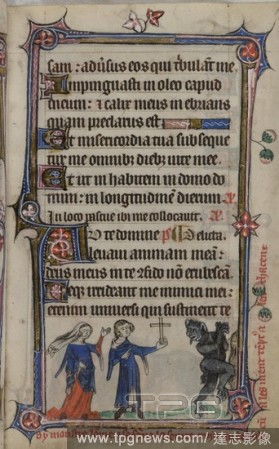 sam: aduersus eos qui tribulant me.
Inpinguasti in oleo capud
meum: et calix meus inebrians
quam preclarus est
Et misericordia tua subseque
tur me omnibus diebus uite mee.
Et ut inhabitem in domo do
mini: in longitudinem dierum.
In loco pascue ibi me collocauit.
Ad te domine
leuaui animam meam:
deus meus in te confido non erubescam.
Neque irrideant me inimici mei:
etenim uniuersi qui sustinent te
TPG
www.tpgnews.com/達志影像